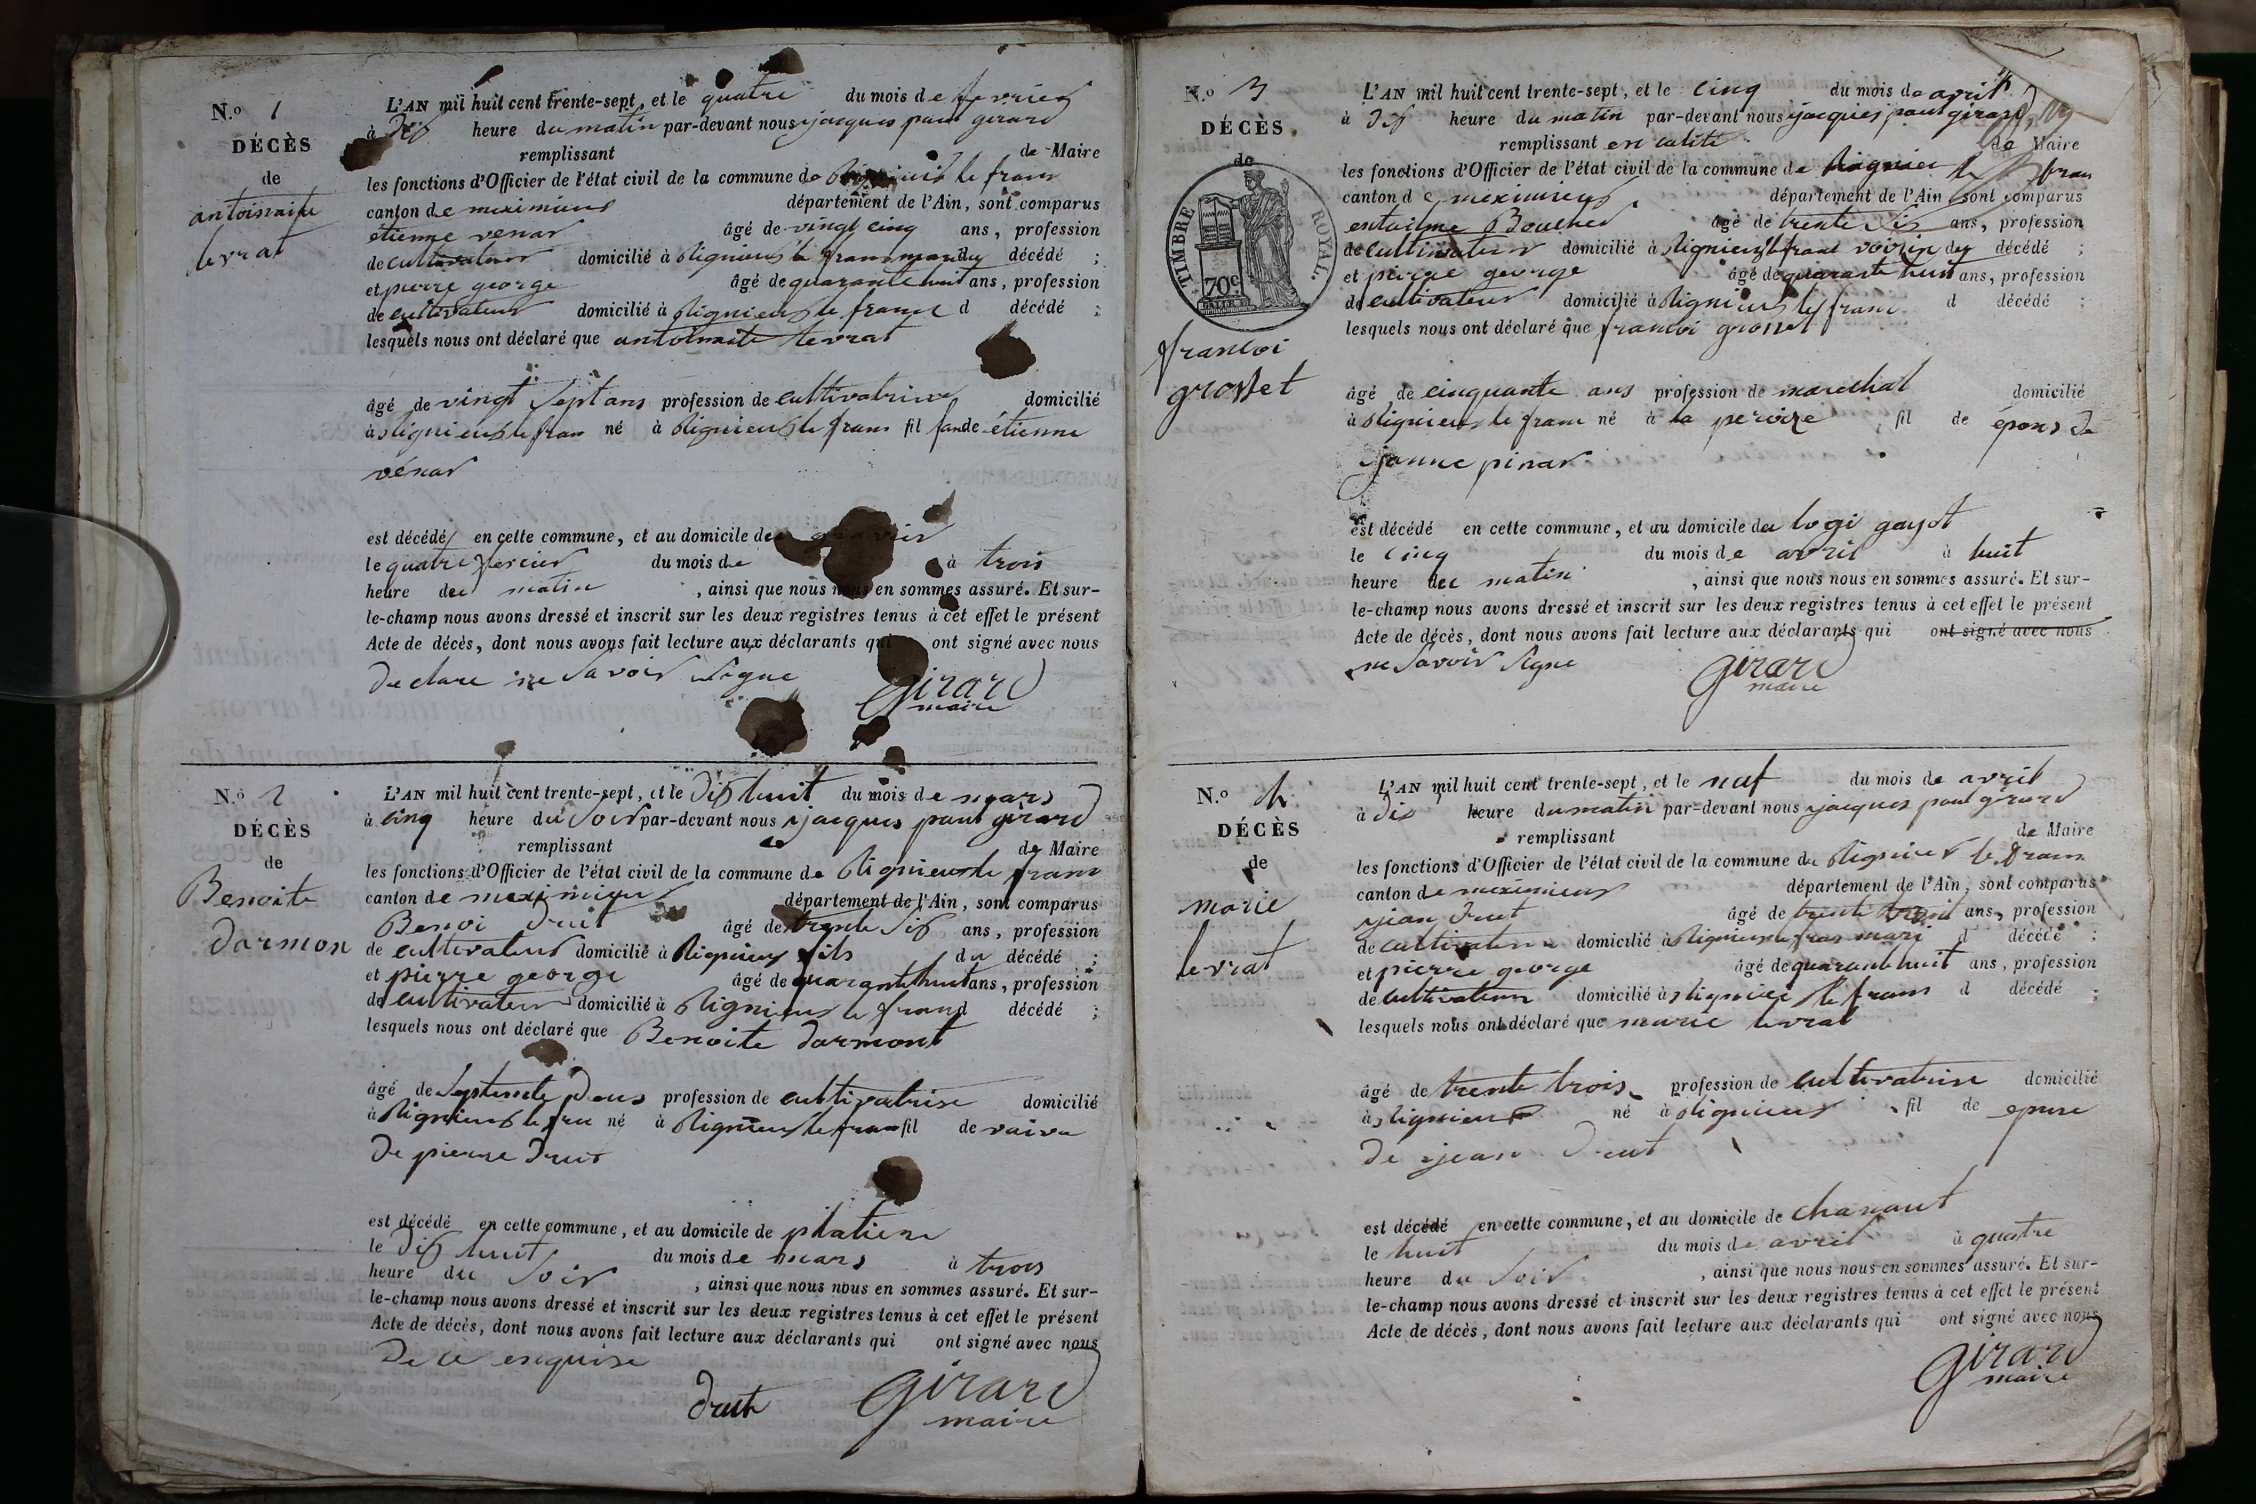 N.o 1
DÉCÈS
de
antoinaite
levrat
L'AN mil huit cent trente-sept, et le quatre du mois de fevrier
à dix heure du matin par-devant nous jacques paul girard
remplissant de Maire
les fonctions d'Officier de l'état civil de la commune de le franc
canton de meximieux département de l'Ain, sont comparus
etienne venar âgé de vingt cinq ans, profession
de cultivateur domicilié à rignieux le franc mari du décédé ;
et pierre george âgé de quarante huit ans, profession
de cultivateur domicilié à rignieux le franc d décédé ;
lesquels nous ont déclaré que antoinaite levrat
âgé de vingt sept ans profession de cultivatrice domicilié
à rignieux le fran né à rignieux le franc fil fam de étienne
vénar
est décédé en cette commune, et au domicile de
le quatre fevrier du mois de à trois
heure du matin, ainsi que nous nous en sommes assuré. Et sur-
le-champ nous avons dressé et inscrit sur les deux registres tenus à cet effet le présent
Acte de décès, dont nous avons fait lecture aux déclarants qui ont signé avec nous
declare ne savoir signe
Girard
maire
N.o 2
DÉCÈS
de
Benoite
darmon
L'AN mil huit cent trente-sept, et le dix huit du mois de mars
à cinq heure du soir par-devant nous jacques paul girard
remplissant de Maire
les fonctions d'Officier de l'état civil de la commune de rignieux le franc
canton de meximieux département de l'Ain, sont comparus
Benoi druit âgé de trente six ans, profession
de cultivateur domicilié à rignieux fils du décédé ;
et pierre george âgé de quarante huit ans, profession
de cultivateur domicilié à rignieux le franc d décédé ;
lesquels nous ont déclaré que Benoite darmont
âgé de septente deus profession de cultivatrise domicilié
à rignieux le fran né à rignieux le franc fil de vaive
de pierre druit
est décédé en cette commune, et au domicile de platiere
le dix huit du mois de mars à trois
heure du soir, ainsi que nous nous en sommes assuré. Et sur-
le-champ nous avons dressé et inscrit sur les deux registres tenus à cet effet le présent
Acte de décès, dont nous avons fait lecture aux déclarants qui ont signé avec nous
de ce enquise
druit
Girard
maire
N.o 3
DÉCÈS.
de
TIMBRE ROYAL.
70c
francoi
grosset
L'AN mil huit cent trente-sept, et le cinq du mois de avril
à dix heure du matin par-devant nous jacques paul girard
remplissant en calité de Maire
les fonctions d'Officier de l'état civil de la commune de rignieu le fran
canton de meximieux département de l'Ain sont comparus
Boucher âgé de trente six ans, profession
de cultivateur domicilié à rignieux le franc voisin du décédé ;
et pierre george âgé de quarante huit ans, profession
de cultivateur domicilié à rignieux le franc d décédé ;
lesquels nous ont déclaré que francoi grosset
âgé de cinquante ans profession de marechal domicilié
à rignieux le franc né à la peroize fil de épous de
janne pinar
est décédé en cette commune, et au domicile du logi gayot
le cinq du mois de avril à huit
heure du matin, ainsi que nous nous en sommes assuré. Et sur-
le-champ nous avons dressé et inscrit sur les deux registres tenus à cet effet le présent
Acte de décès, dont nous avons fait lecture aux déclarants qui ont signé avec nous
ne savoir signe
Girard
maire
N.o 4
DÉCÈS
de
marie
levrat
L'AN mil huit cent trente-sept, et le neuf du mois de avril
à dix heure du matin par-devant nous jacques paul girard
remplissant de Maire
les fonctions d'Officier de l'état civil de la commune de rignieux le franc
canton de meximieux département de l'Ain, sont comparus
jean druet âgé de trente ans, profession
de cultivateur domicilié à rignieux le fran mari d décédé ;
et pierre george âgé de quarante huit ans, profession
de cultivateur domicilié à rignieux le franc d décédé ;
lesquels nous ont déclaré que marie levrat
âgé de trente trois profession de cultivatrise domicilié
à rignieux né à rignieux fil de epuse
de jean druet
est décédé en cette commune, et au domicile de chanaut
le huit du mois de avril à quatre
heure du soir, ainsi que nous nous en sommes assuré. Et sur-
le-champ nous avons dressé et inscrit sur les deux registres tenus à cet effet le présent
Acte de décès, dont nous avons fait lecture aux déclarants qui ont signé avec nous
Girard
maire